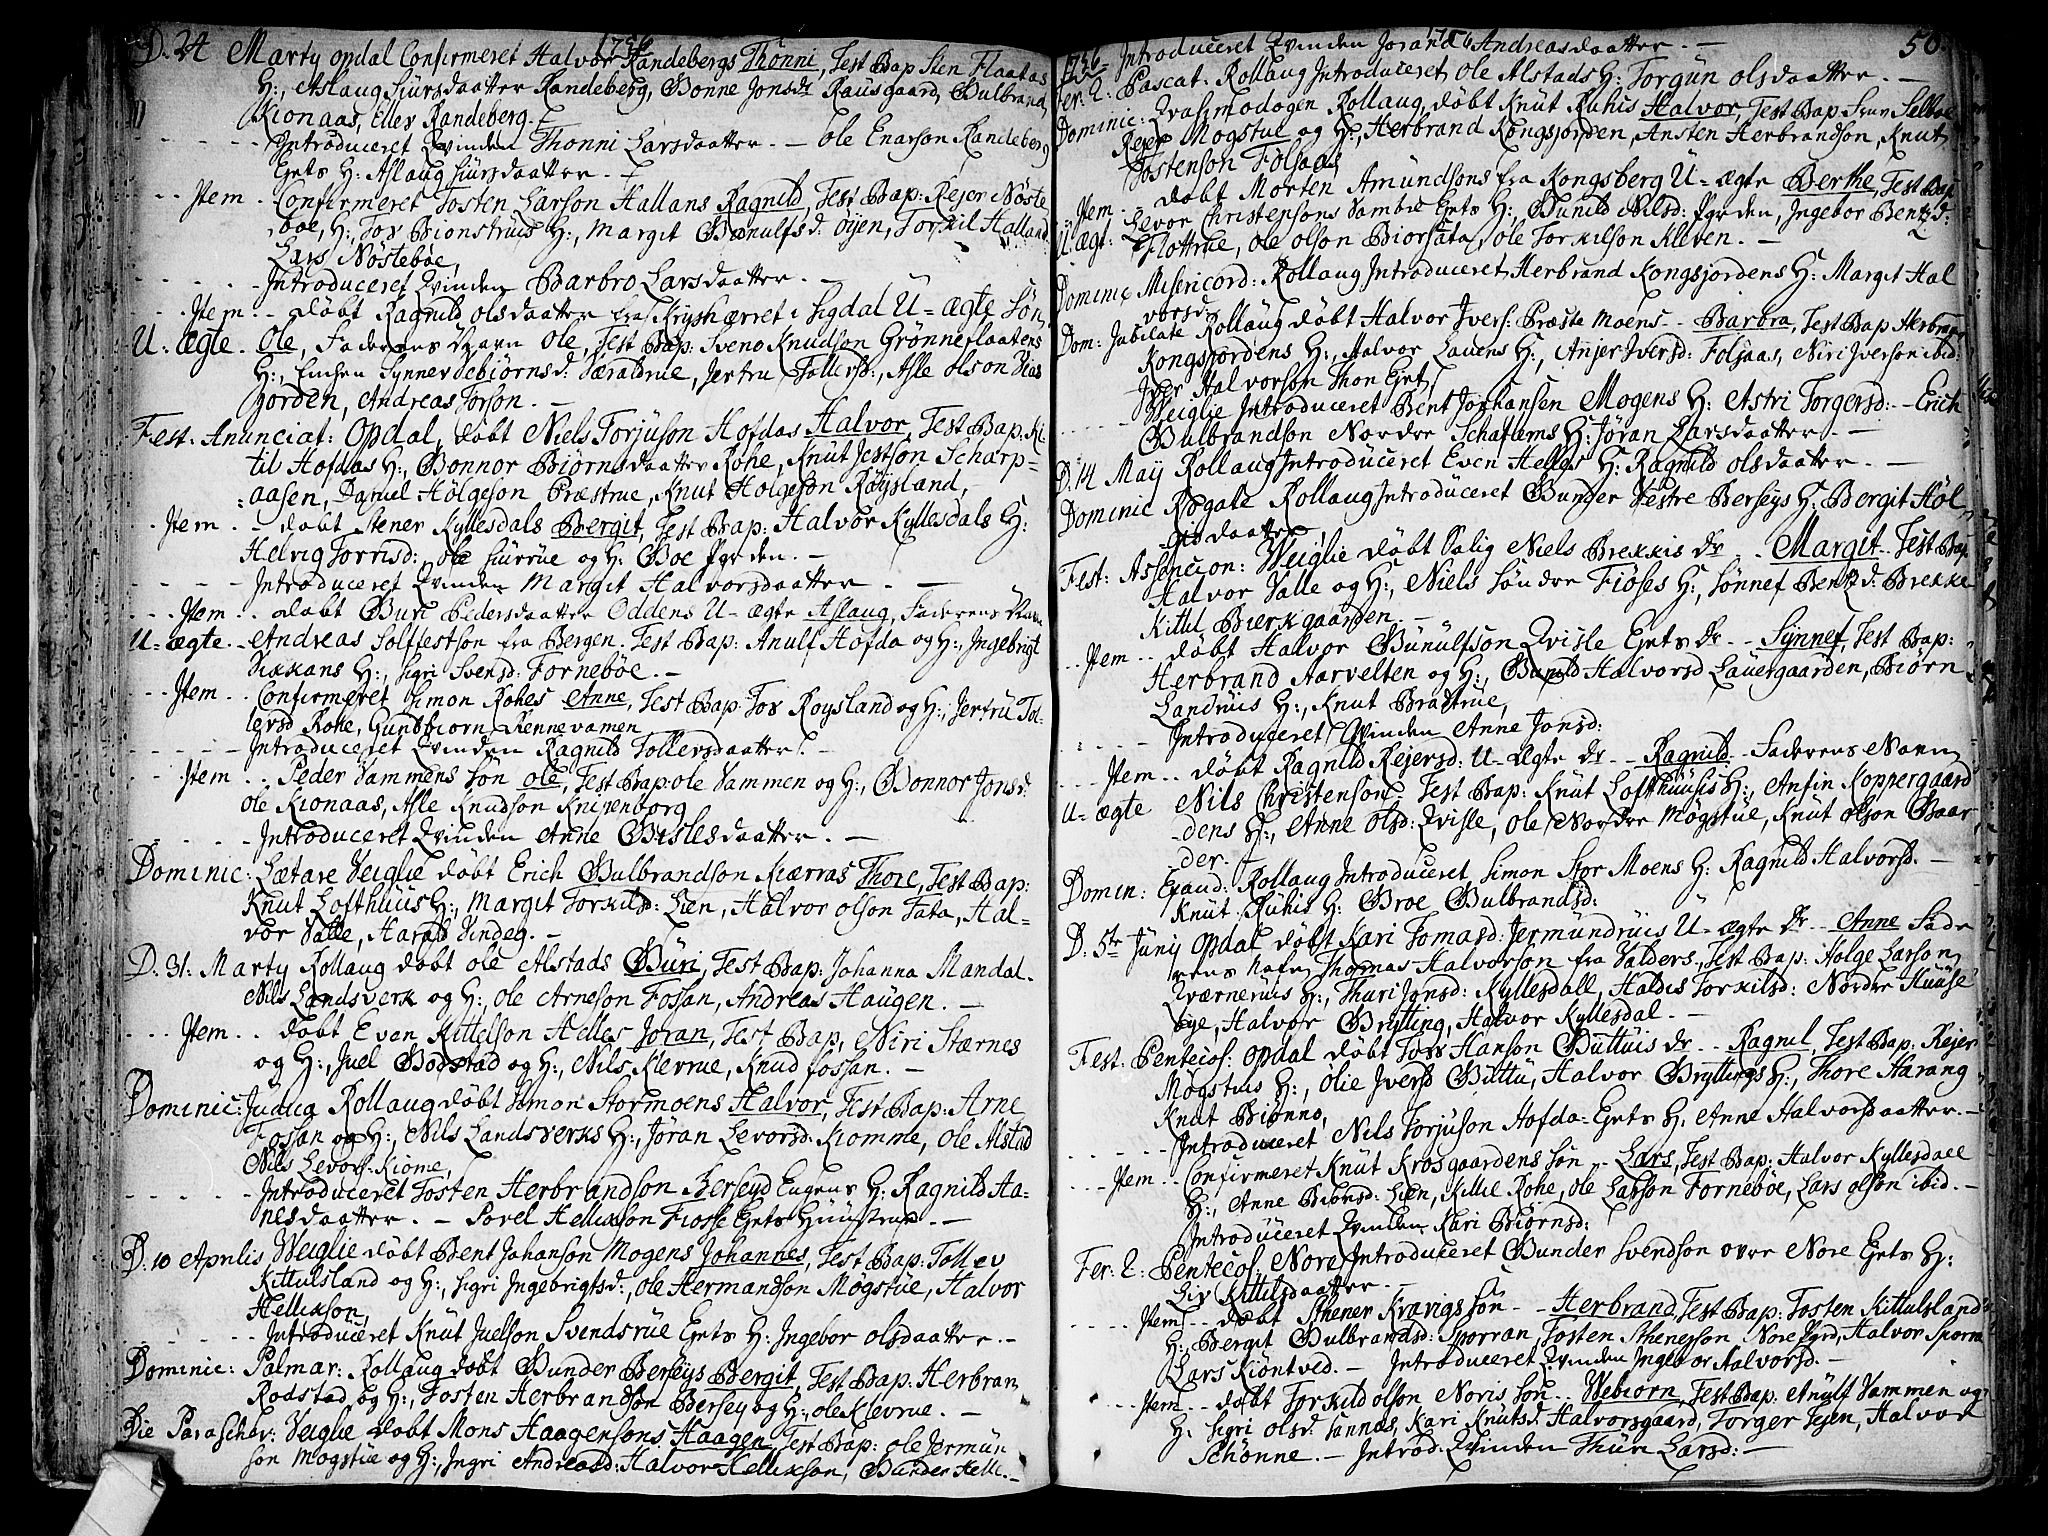 1736
D. 24 Marty Opdal Confirmeret Halvor Randebergs Thonni, Test Bap Sten Flaatas
H:, Aslaug Siursdaatter Randeberg, Gonne Jonsdr Rausgaard, Gulbrand
Kionaas, Eller Randeberg.
Introduceret Qvinden Thonni Larsdaatter. — Ole Enarson Randeberg
Eets H: Aslaug Siursdaatter. —
Item . Confirmeret Tosten Larson Hallans Ragnild, Test Bap: Rejer Nøste
boe, H:, Tor Bionstruis H:, Margit Gunulfsd. Øijen, Torkil Halland
Lars Nøstebøe,
Introduceret Qvinden Barbro Larsdaatter. —
Item . . døbt Ragnild Olsdaatter fra Kryshærret i Sigdal U-ægte Søn
U: ægte. Ole, Faderens Navn Ole, Test Bap: Sveno Knudson Grønneflaatens
H:, Enchen Synnev Vebiørnsd: Væraldrue, Jertru Tollersd:, Asle Olson Vias
jorden, Andreas Torson. —
Fest: Anunciat: Opdal, døbt Niels Torjuson Hofdas Halvor, Test Bap: Ki
til Hofdas H:, Gonnor Biørnsdaatter Rohe, Knut Jestson Scharp=
aasen, Daniel Hølgeson Præstrue, Knut Holgeson Røysland,
Item . . døbt Stener Kyllesdals Bergit, Test Bap: Halvor Kyllesdals H:
Helvig Torrisd: Ole Siurrue og H: Boe Pgrden. —
Introduceret Qvinden Margit Halvorsdaatter —
Item . . døbt Guri Pedersdaatter Oddens U-ægte Aslaug, Faderens Navn
U=ægte. Andreas Solfestson fra Bergen. Test Bap: Anulf Hofda og H:, Ingebrigt
Vikkans H:, Sigri Svensd: Fornebøe. —
Item . . Confirmeret Simon Rohes Anne, Test Bap: Tor Roysland og H:, Jertru Tol-
lersd Rohe, Gundbiorn Rennevamen
Introduceret Qvinden Ragnild Tollersdaatter. —
Item . . Peder Vammens Søn Ole, Test Bap: Ole Vammen og H:, Gonnor Jonsd:
Ole Kionaas, Asle Knudson Knivenborg
Introduceret Qvinden Anne Gislesdaatter. —
Dominic: Lætare Veiglie døbt Erich Gulbrandson Kiærras Thore, Test Bap:
Knut Lofthuus H:, Margit Torkilds: Lien, Halvor Olson Tata, Hal-
vor Valle, Harald Vindeg. —
D. 31. Marty Rollaug døbt Ole Alstads Guri, Test Bap: Johanna Mandal.
Nils Landsverk og H:, Ole Arneson Fossan, Andreas Haugen. —
Item . . døbt Even Kittelson Helles Joran, Test Bap, Niri Stærnes
og H:, Juel Bodstad og H:, Nils Klevrue, Knud fossan. —
Dominic: Judica Rollaug døbt Simon Stormoens Halvor, Test Bap: Arne
Fossan og H:, Nils Landsverks H:, Jøran Levorsd: Kiomme, Ole Alstad
Nils Levors: Kiome,
Introduceret Tosten Herbrandson Berseyd Eugens H: Ragnild Aa-
nesdaatter. — Povel Hellikson Fiosse Eets Huustrue. —
D. 10 Aprilis Veiglie døbt Bent Johanson Mogens Johannes, Test Bap: Tollev
Kittulsland og H:, Sigri Ingebrigtsd:, Ole Hermandson Møgstue, Halvor
Hellikson,
Introduceret Knut Juelson Svendsrue Eets H: Ingebor Olsdaatter. —
Dominic: Palmar: Rollaug døbt Gunder Berseys Bergit, Test Bap: Herbran
Rodstad og H:, Tosten Herbrandson Bersey og H:, Ole Klevrue. —
Die Paraschev: Veiglie døbt Mons Haagensons Haagen, Test Bap: Ole Jermun
son Mogstue og H:, Ingri Andreasd: Halvor Hellikson, Gunder Helle. —
1736 Introduceret Qvinden Jorand Andreasdaatter. — 50.
Fer: 2: Pascat: Rollaug Introduceret Ole Alstads H: Torgun Olsdaatter. —
Dominic: Qvasimodogen Rollaug, døbt Knut Ruhis Halvor, Test Bap:
Rejer Mogstue og H:, Herbrand Kongsjorden, Ansten Herbrandson, Knut
Tostenson Følsaas,
Item . . døbt Morten Amundsons fra Kongsberg U-ægte Berthe, Test Bap
U.ægt: Levor Christensons Vambie Eets H: Gunild Nilsd: Pgrden, Ingebor Bentzd:
Flottrue, Ole Olson Biorsata, Ole Torkilson Kleven. —
Dominic Misericord: Rollaug Introduceret Herbrand Kongsjordens H: Margit Hal
vorsd:
Dom: Jubilate Rollaug døbt Halvor Ivers: Præste Moens - Barbra, Test Bap Herbran
Kongsjordens H:, Halvor Lauens H:, Anjer Iversd: Folsaas, Niri Iverson ibid:
Iver Halvorson Thon Eets,
Veiglie Introduceret Bent Johansen Mogens H: Astri Torgersd: - Erich
Gulbrandson Nordre Schaflems H: Jøran Larsdaatter. —
D. 14 Maij Rollaug Introduceret Even Helles H: Ragnild Olsdaatter. —
Dominic Rogate Rollaug Introduceret Gunder Vestre Berseys H: Bergit Høl
gisdaatter
Fest: Assencion: Veiglie døbt Salig Niels Brekkis dr . . Margit. Test Bap.
Halvor Valle og H:, Niels Søndre Fiøses H:, Sønnef Bentz d: Brekke
Kittil Bierkgaarden. —
Item . . døbt Halvor Gunulfson Qvisle Eets dr - - Synnef, Test Bap:
Herbrand Aarvelten og H:, Gunild Halvorsd Lauergaarden, Biørn
Landruis H:, Knut Braatrue,
Introduceret Qvinden Anne Jonsd:
Item . . døbt Ragnild Rejersd: U-ægte dr - - Ragnild - Faderens Navn
U=ægte Nils Christenson. Test Bap: Knut Lofthuusis H:, Anfin Koppergaard
dens H:, Anne Olsd: Qvisle, Ole Nordre Møgstue, Knut Olson Baar
der. —
Domin: Exaud: Rollaug Introduceret Simon Stor Moens H: Ragnild Halvorsd. —
Knut Ruhis H: Groe Gulbrandsd:
D. 5te Junij Opdal døbt Kari Tomasd: Jermundruis U-ægte dr - - Anne Fade
rens Nafn Thomas Halvorson fra Valders, Test Bap: Holge Larson
Qværneruis H:, Thuri Jonsd: Kyllesdall, Haldis Torkilsd: Nordre Huuse
bye, Halvor Brytting, Halvor Kyllesdal. —
Fest: Pentecos: Opdal døbt Torr Hanson Guttuis dr - - Ragnil, Test Bap: Rejer
Møgstuis H:, Ølie Iversd Guttu, Halvor Gryttings H:, Thore Harang
Knut Biønno,
Introduceret Nils Torjuson Hofda Eets H, Anne Halvorsdaatter. —
Item . . Confirmeret Knut Krosgaardens Søn - Lars, Test Bap: Halvor Kyllesdall
H:, Anne Biørnsd: Lien, Kittil Rohe, Ole Larson Fornebøe, Lars Olson ibid. —
Introduceret Qvinden Kari Biørnsd:
Fer: 2: Pentecos: Nore Introduceret Gunder Svendson over Nore Eets H:
Liv Kittilsdaatter. —
Item . . døbt Sthener Kravigs Søn - - Herbrand, Test Bap: Tosten Kittulsland
H: Bergit Gulbrandsd: Sporran, Tosten Sthenerson Nore Pgrd, Halvor Sporran
Lars Kiøntved. — Introduceret Qvinden Ingebor Halvorsd. —
Item . . døbt Torkild Olson Noris Søn . . Webiorn, Test Bap: Anulf Vammen og
H: Sigri Olsd: Sannes, Kari Knutsd: Halvorsgaard, Torger Tejen, Halvor
Schønne. — Introd: Qvinden Thuri Larsd: —